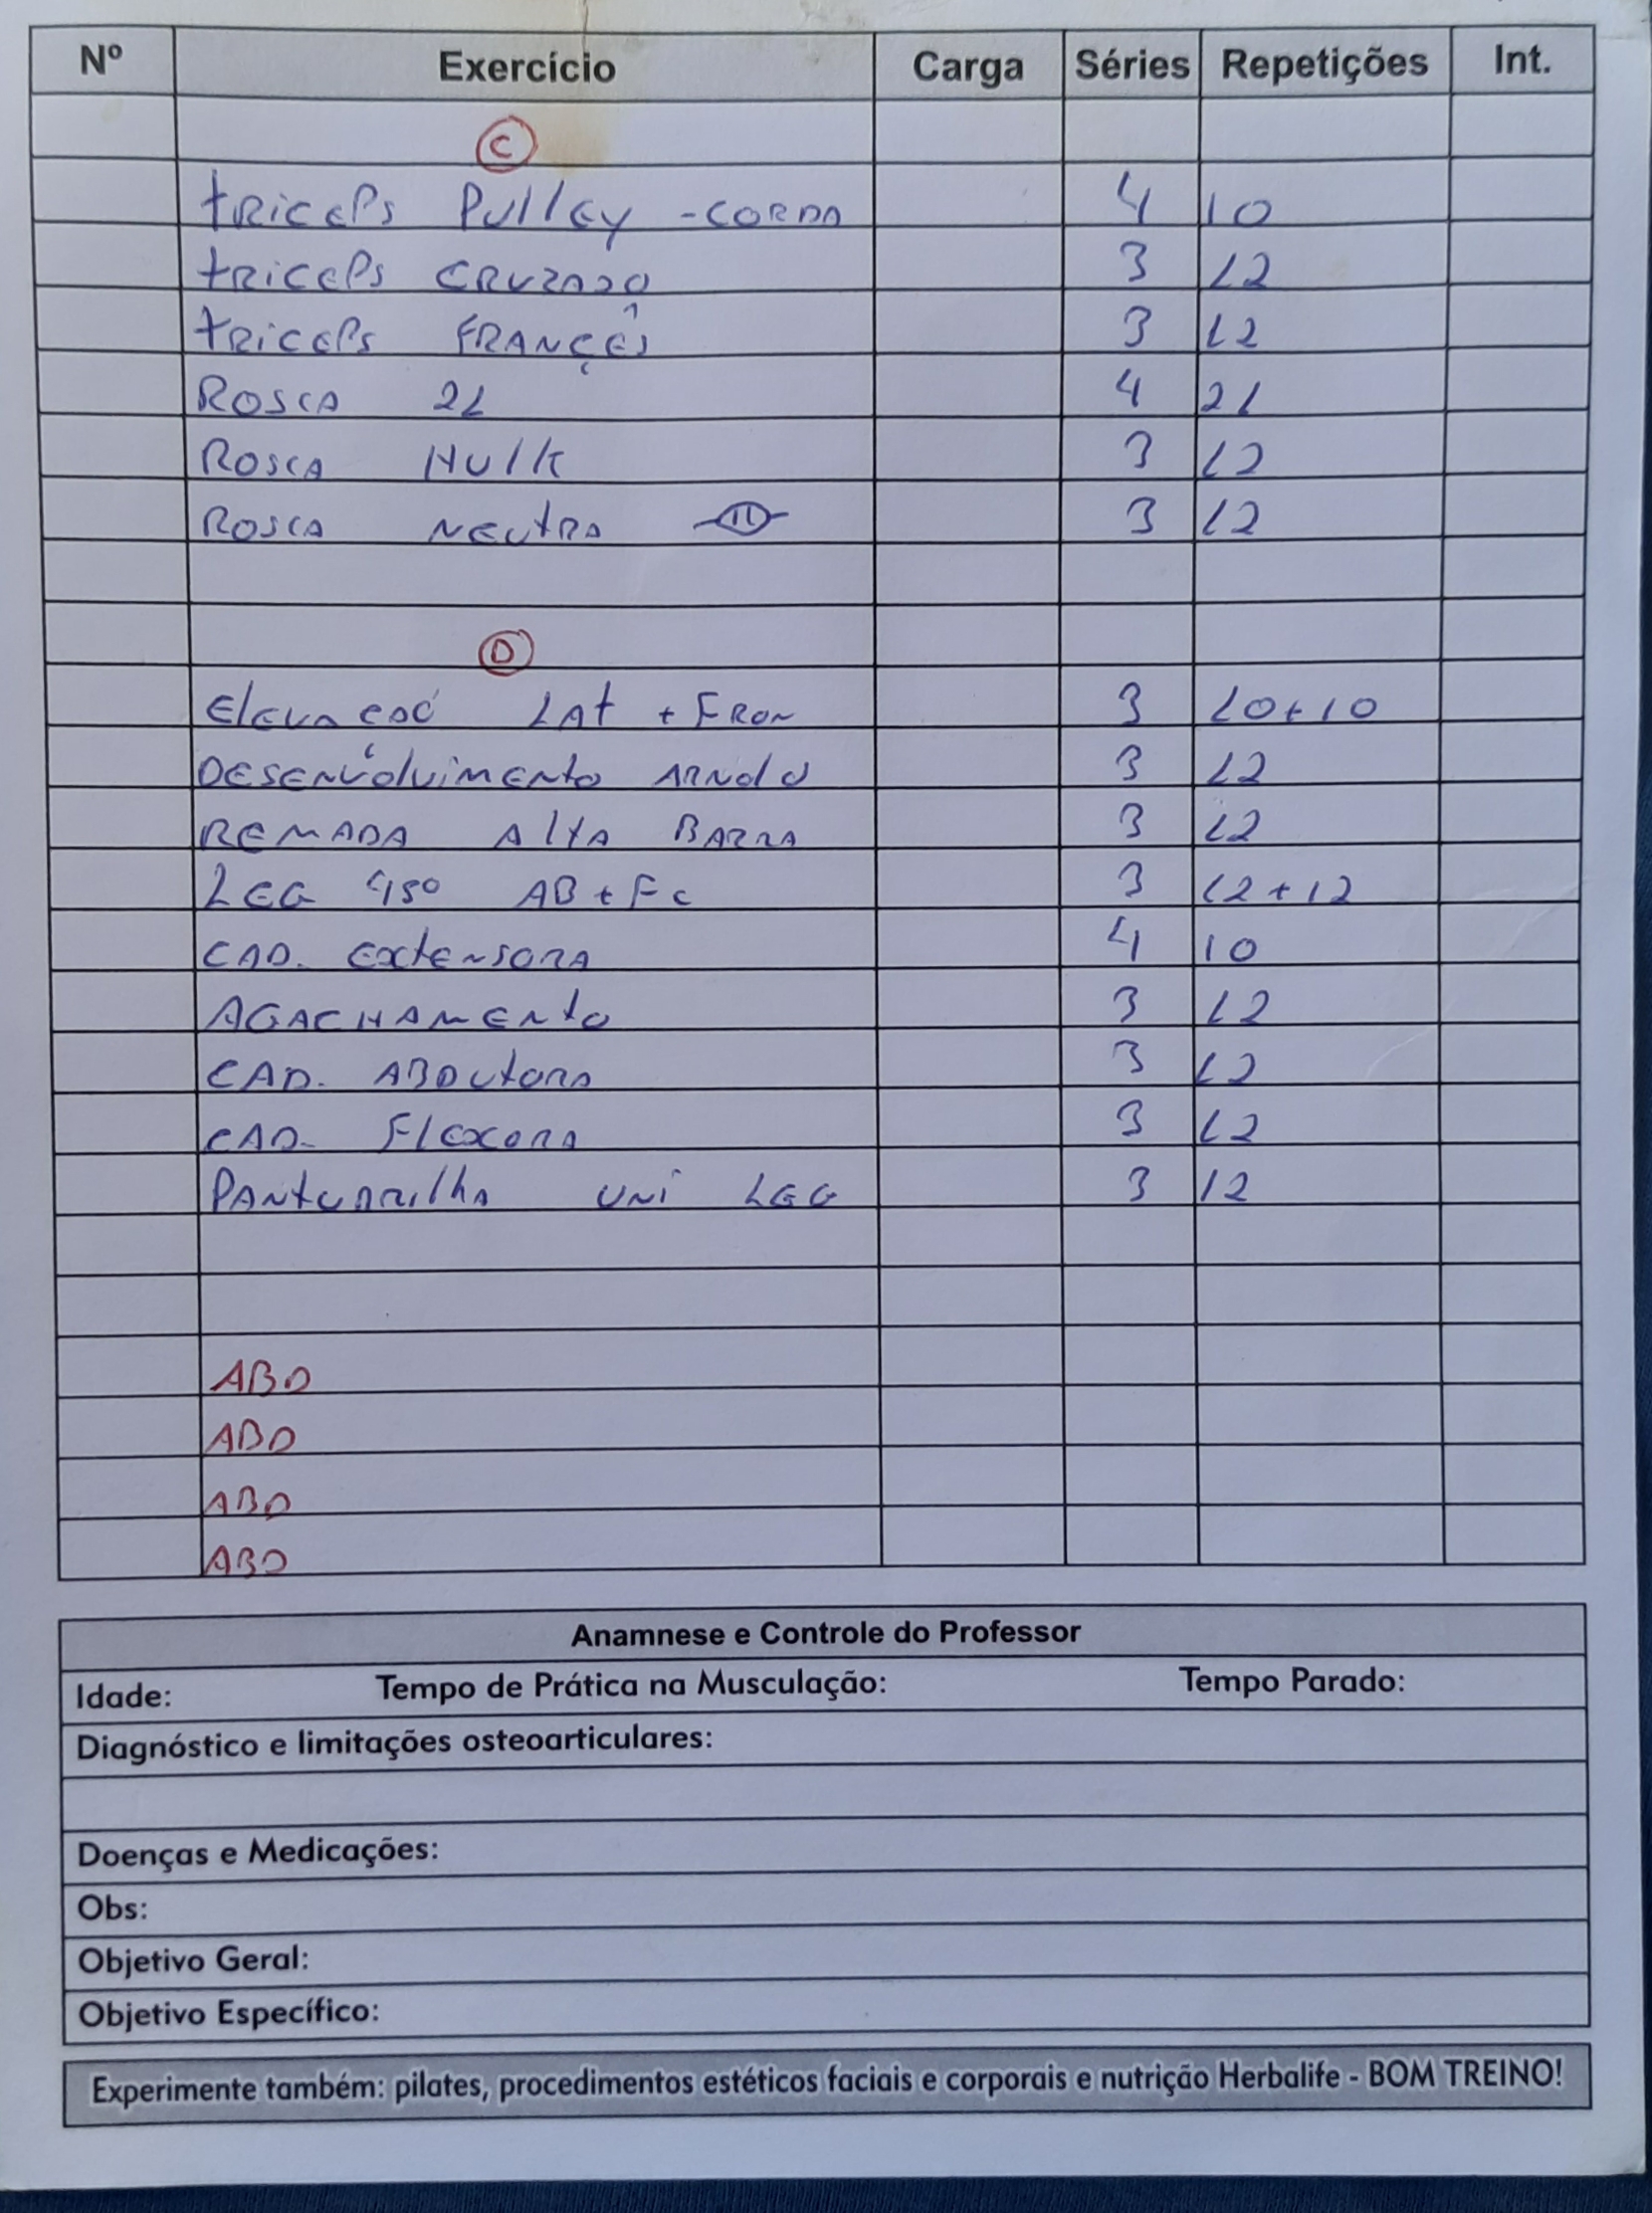 Nº Exercício Carga Séries Repetições Int.
C
tRiCEPs PullEy - CORDA 4 10
tRiCEPs CRUZADO 3 12
tRiCEPs FRANÇÊS 3 12
ROSCA 21 4 21
ROSCA HUlK 3 12
ROSCA NEUtRA 3 12
D
ElEVAÇÃO LAt + FRON 3 10+10
DESENVolViMENto ARNolD 3 12
REMADA AltA BARRA 3 12
LEG 45º AB + Fc 3 12+12
CAD. ExtENSORA 4 10
AGACHAMENto 3 12
CAD. ABDUtORA 3 12
CAD. FlExORA 3 12
PANtURRilhA UNi LEG 3 12
ABD
ABD
ABD
ABD
Anamnese e Controle do Professor
Idade: Tempo de Prática na Musculação: Tempo Parado:
Diagnóstico e limitações osteoarticulares:
Doenças e Medicações:
Obs:
Objetivo Geral:
Objetivo Específico:
Experimente também: pilates, procedimentos estéticos faciais e corporais e nutrição Herbalife - BOM TREINO!